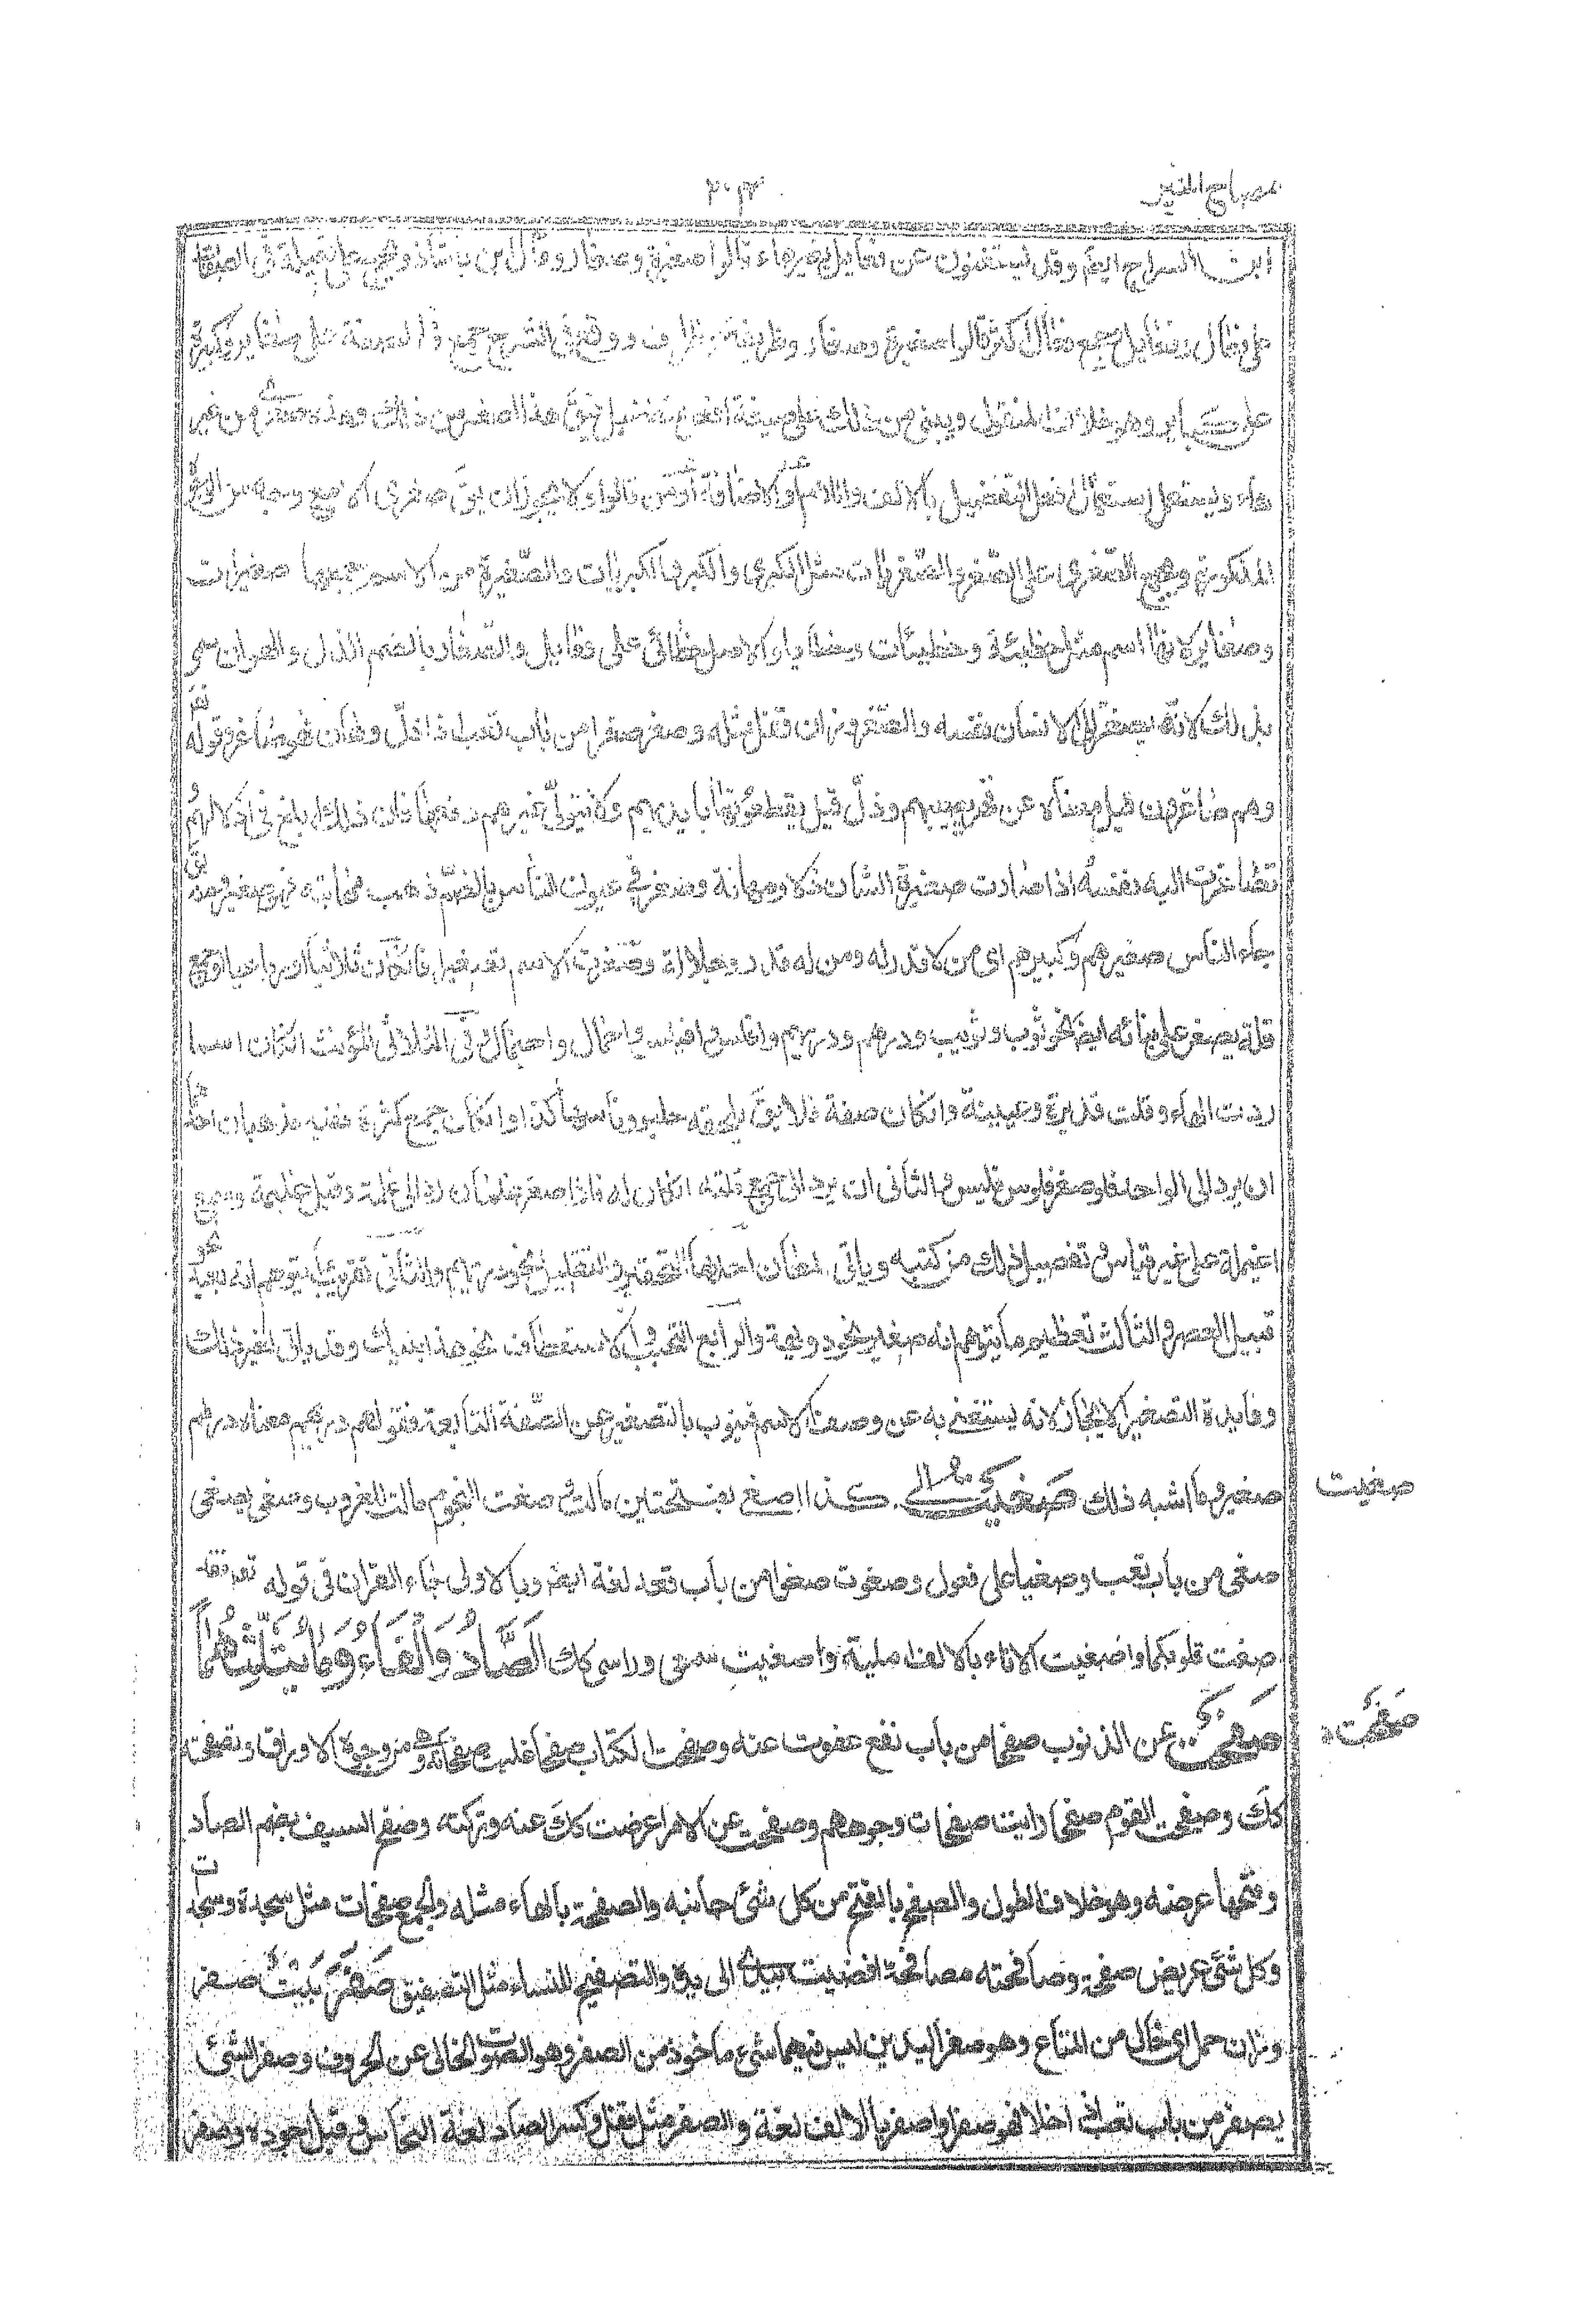 مصباح المنير
٣٠٣
ابن السراج ايضم وقد يستغنون عن فعايل بغيرها قالوا صغيرة وصغار وقال ابن بابشاذ وتجمع فعيلة في الصفات
على فعال وفعايل وجمع فعال اكثر قالوا صغيرة وصغار وظريفة وظراف ووقع في الشرح جمع صغيرة على صغاير وكبيرة
على كباير وهو خلاف المنقول ويبنى من ذلك على صيغة افعل تفضيل فيق هذا اصغر من ذلك وهذه صغرى من غير
هاء ويستعمل استعمال افعل التفضيل بالالف واللام او الاضافة او من قالوا ولا يجوز ان يق صغرى الا مع وجه من الوجوه
المذكورة وتجمع الصّغرى على الصّغر والصّغريات مثل الكبرى والكبر والكبريات والصّغيرة من الاسم جمعها صغيرات
وصغاير لانها اسم مثل خطيئة وخطيئات وخطايا والاصل خطائى على فعايل والصّغار بالضم الذل والهوان سمى
بذلك لانّه يصغر الى الانسان نفسه والصّغر وزان قفل مثله وصغر صغرا من باب تعب اذا ذلّ وهان فهو صاغر وقوله تعم
وهم صاغرون قيل معناه عن قهر يصيبهم وذلّ قيل يعطونها بايديهم ولا يتولّى غيرهم دفعها فان ذلك ابلغ في اذلالهم و
تصاغرت اليه نفسه اذا صارت صغيرة الشان ذلا ومهانة وصغر في عيون الناس بالضمّ ذهب مهابته فهو صغير ومنه يق
جاء الناس صغيرهم وكبيرهم اى من لا قدر له ومن له قدر وجلالة وصغرت الاسم تصغيرا فان كان ثلاثيا او رباعيا او جمع
قلة يصغر على بنائه ايضم نحو ثوب وثويب ودرهم ودريهم وافلس وافيلس واحمال واحيمال وفي الثلاثى المؤنث ان كان اسما
ردت الهاء وقلت قديرة وعيينة وان كان صفة فلا يق ملحفة خليق واسحاق كذا وان كان جمع كثرة ففيه مذهبان احدهما
ان يرد الى الواحد فلو صغر فلوس فليس والثانى ان يرد الى جمع قلته ان كان له فاذا صغر غلمان رد الى غلمة وقيل غليمة وجمع
اغيلمة على غير قياس وتفصيل ذلك من كتبه وياتى لمعان احدها التحقير والتقليل نحو دريهم والثانى تقريب ما يتوهم انه بعيد نحو
قبيل العصر والثالث تعظيم ما يتوهم انه صغير نحو دويهة والرابع التحبب والاستعطاف نحو هذا بنيك وقد ياتى لغير ذلك
وفايدة التصغير الايجاز لانه يستغنى به عن وصف الاسم فينوب بالتصغير عن الصّفة التابعة فقولهم دريهم معناه درهم
صغير وما اشبه ذلك صَغَيْتُ الى كذا اصغى بفتحتين ملت وصغت النجوم مالت للغروب وصغى يصغى
صغيت
صغى من باب تعب وصغيا على فعول وصغوت صغوا من باب قعد لغة ايضم وبالاولى جاء القران في قوله تعم فقد
صغت قلوبكما واصغيت الاناء بالالف املته واصغيت سمعى وراسى كك الصَّادُ وَالْفَاءُ وَمَا يُثَلِّثُهُمَا
صَفَحْتُ عن الذنوب صفحا من باب نفع عفوت عنه وصفحت الكتاب صفحا قلبت صفحاته وهى وجوه الاوراق وتصفحته
صَفَحْتُ
كك وصفحت القوم صفحا رايت صفحات وجوههم وصفحت عن الامر اعرضت كك عنه وتركته وصفح السيف بضم الصاد
وفتحها عرضه وهو خلاف الطول والصفح بالفتح من كل شئ جانبه والصفحة بالهاء مثله والجمع صفحات مثل سجدة وسجدات
وكل شئ عريض صفحة وصافحته مصافحة افضيت بيدى الى يده والتصفيح للنساء مثل التصفيق صَفِرَ بَيْتٌ صفر
وزان حمل اى خالى من المتاع وهو صفر اليدين ليس فيهما شئ ماخوذ من الصفر وهو الصوت الخالى عن الحروف وصفر الشئ
يصفر من باب تعب اذا خلا فهو صفر واصفر بالالف لغة والصفر مثل قفل وكسر الصاد لغة النحاس وقيل اجوده وصفر